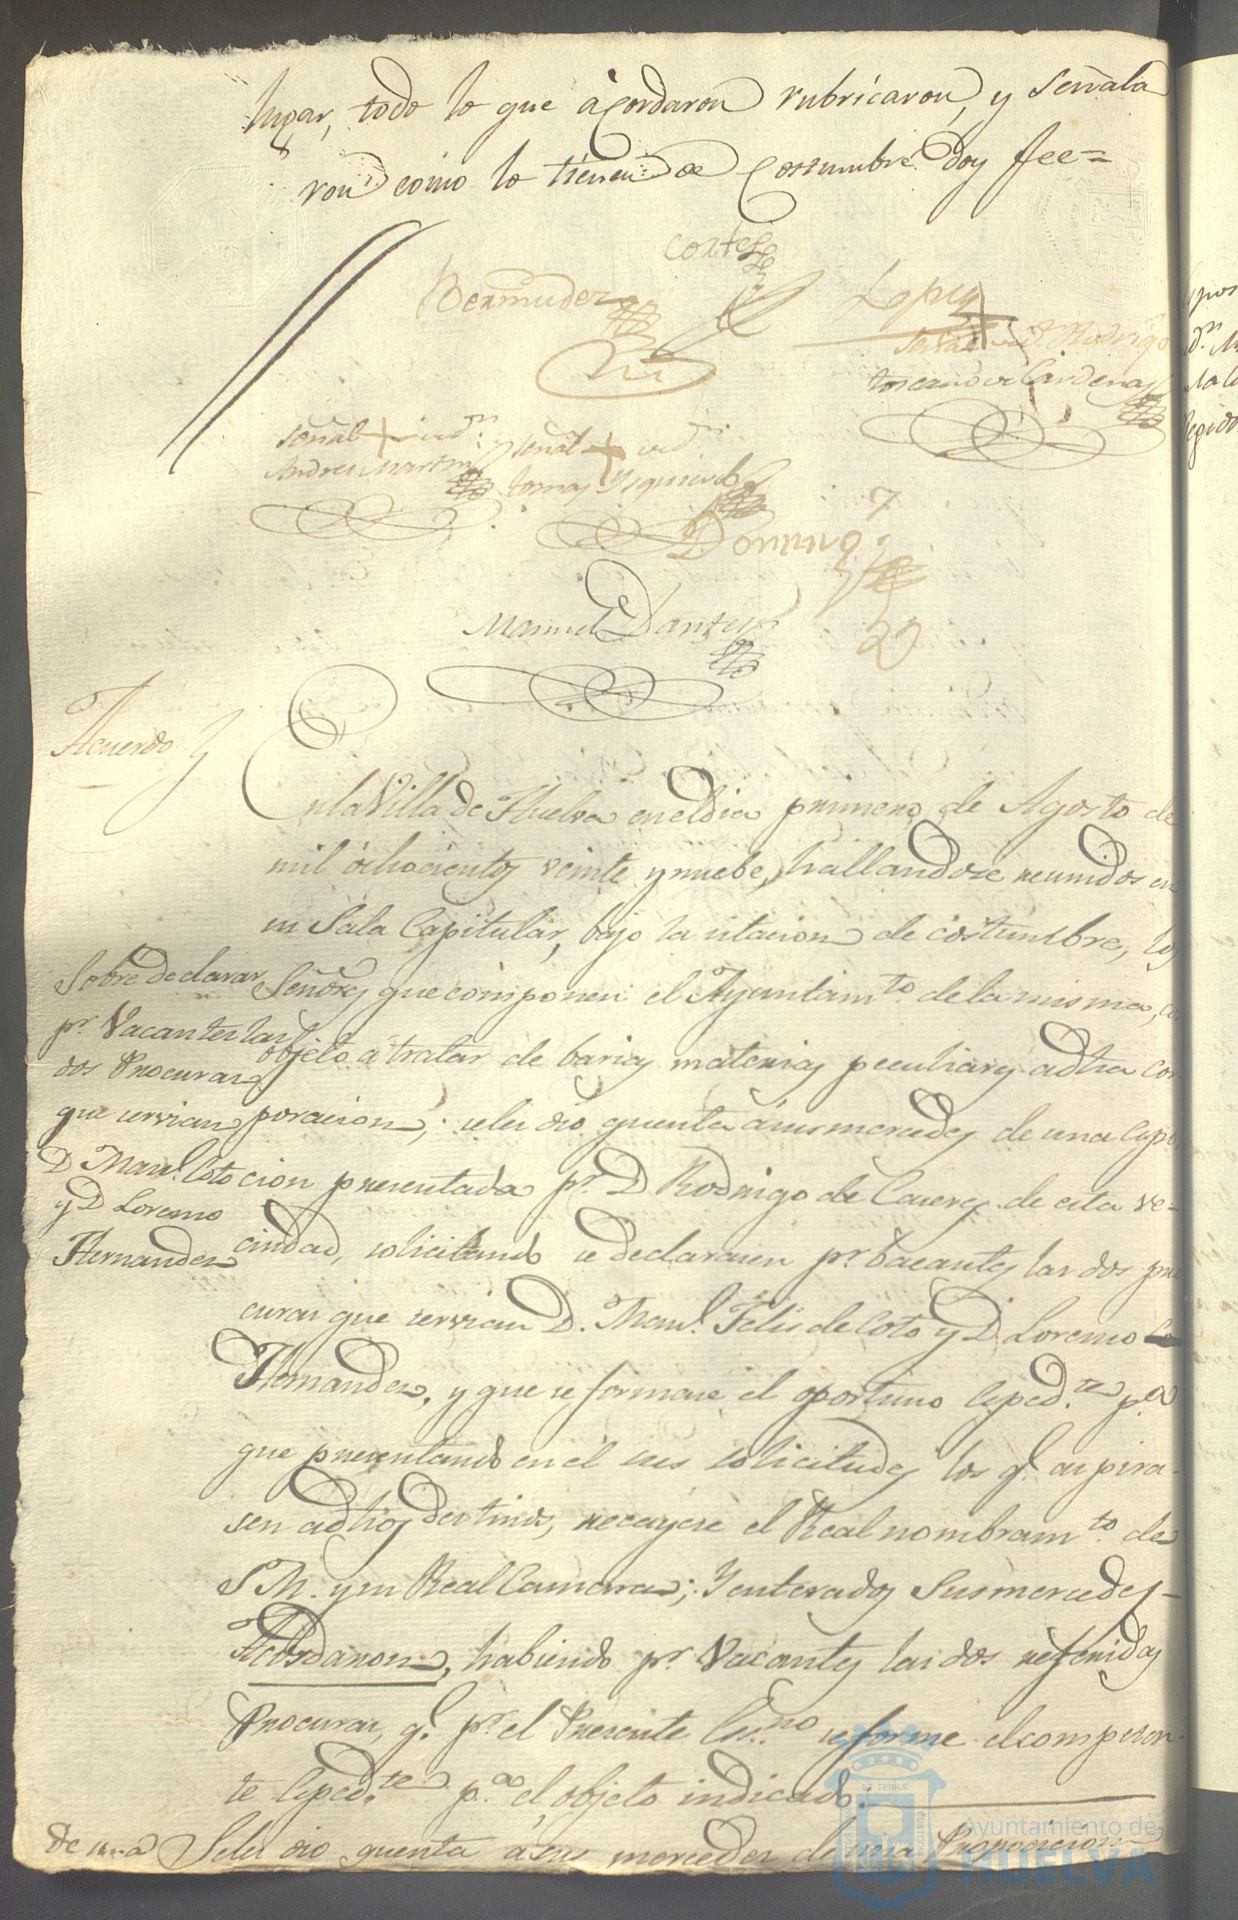 lugar, todo lo que acordaron rubricaron, y señala
ron como lo tienen de Costumbre doy fee=
Cortes
Bermudez
Lopez
Señal + de D. Rodrigo
toscano de Cardenas
Señal + de
Andres Martin
señal + de
tomas Ysquierdo
Domingz
Manuel Dantes
Acuerdo
En la Villa de Huelva en el dia primero de Agosto de
mil ochocientos veinte y nuebe, hallandose reunidos en
su Sala Capitular, bajo la citacion de costumbre, los
Señores que componen el Ayuntamto. de la misma, con
objeto a tratar de barias materias peculiares a dha cor
poracion; se les dio quenta á sus mercedes de una Espo
cion presentada pr. D Rodrigo de Cueros de esta ve-
cindad, solicitando se declarasen pr. bacantes las dos pro
curas que servian D. Manl. Felis de Coto y D. Lorenzo
Hernandez, y que se formase el oportuno Espedte. pa.
que presentando en él sus solicitudes los q. aspira-
sen a dhos destinos, recayese el Real nombramto. de
S M. y su Real Camara; Y enterados Sus mercedes-
Acordaron, habiendo pr. Vacantes las dos referidas
Procuras, q. pr. el Presente Esno. se forme el competen-
te Espedte. pa. el objeto indicado.
Se les dio quenta á sus mercedes de una Proposicion
Sobre declarar
pr. Vacantes las
dos Procuras
que servian
D Manl. Coto
y D Lorenzo
Hernandez
de una
Ayuntamiento de
HUELVA